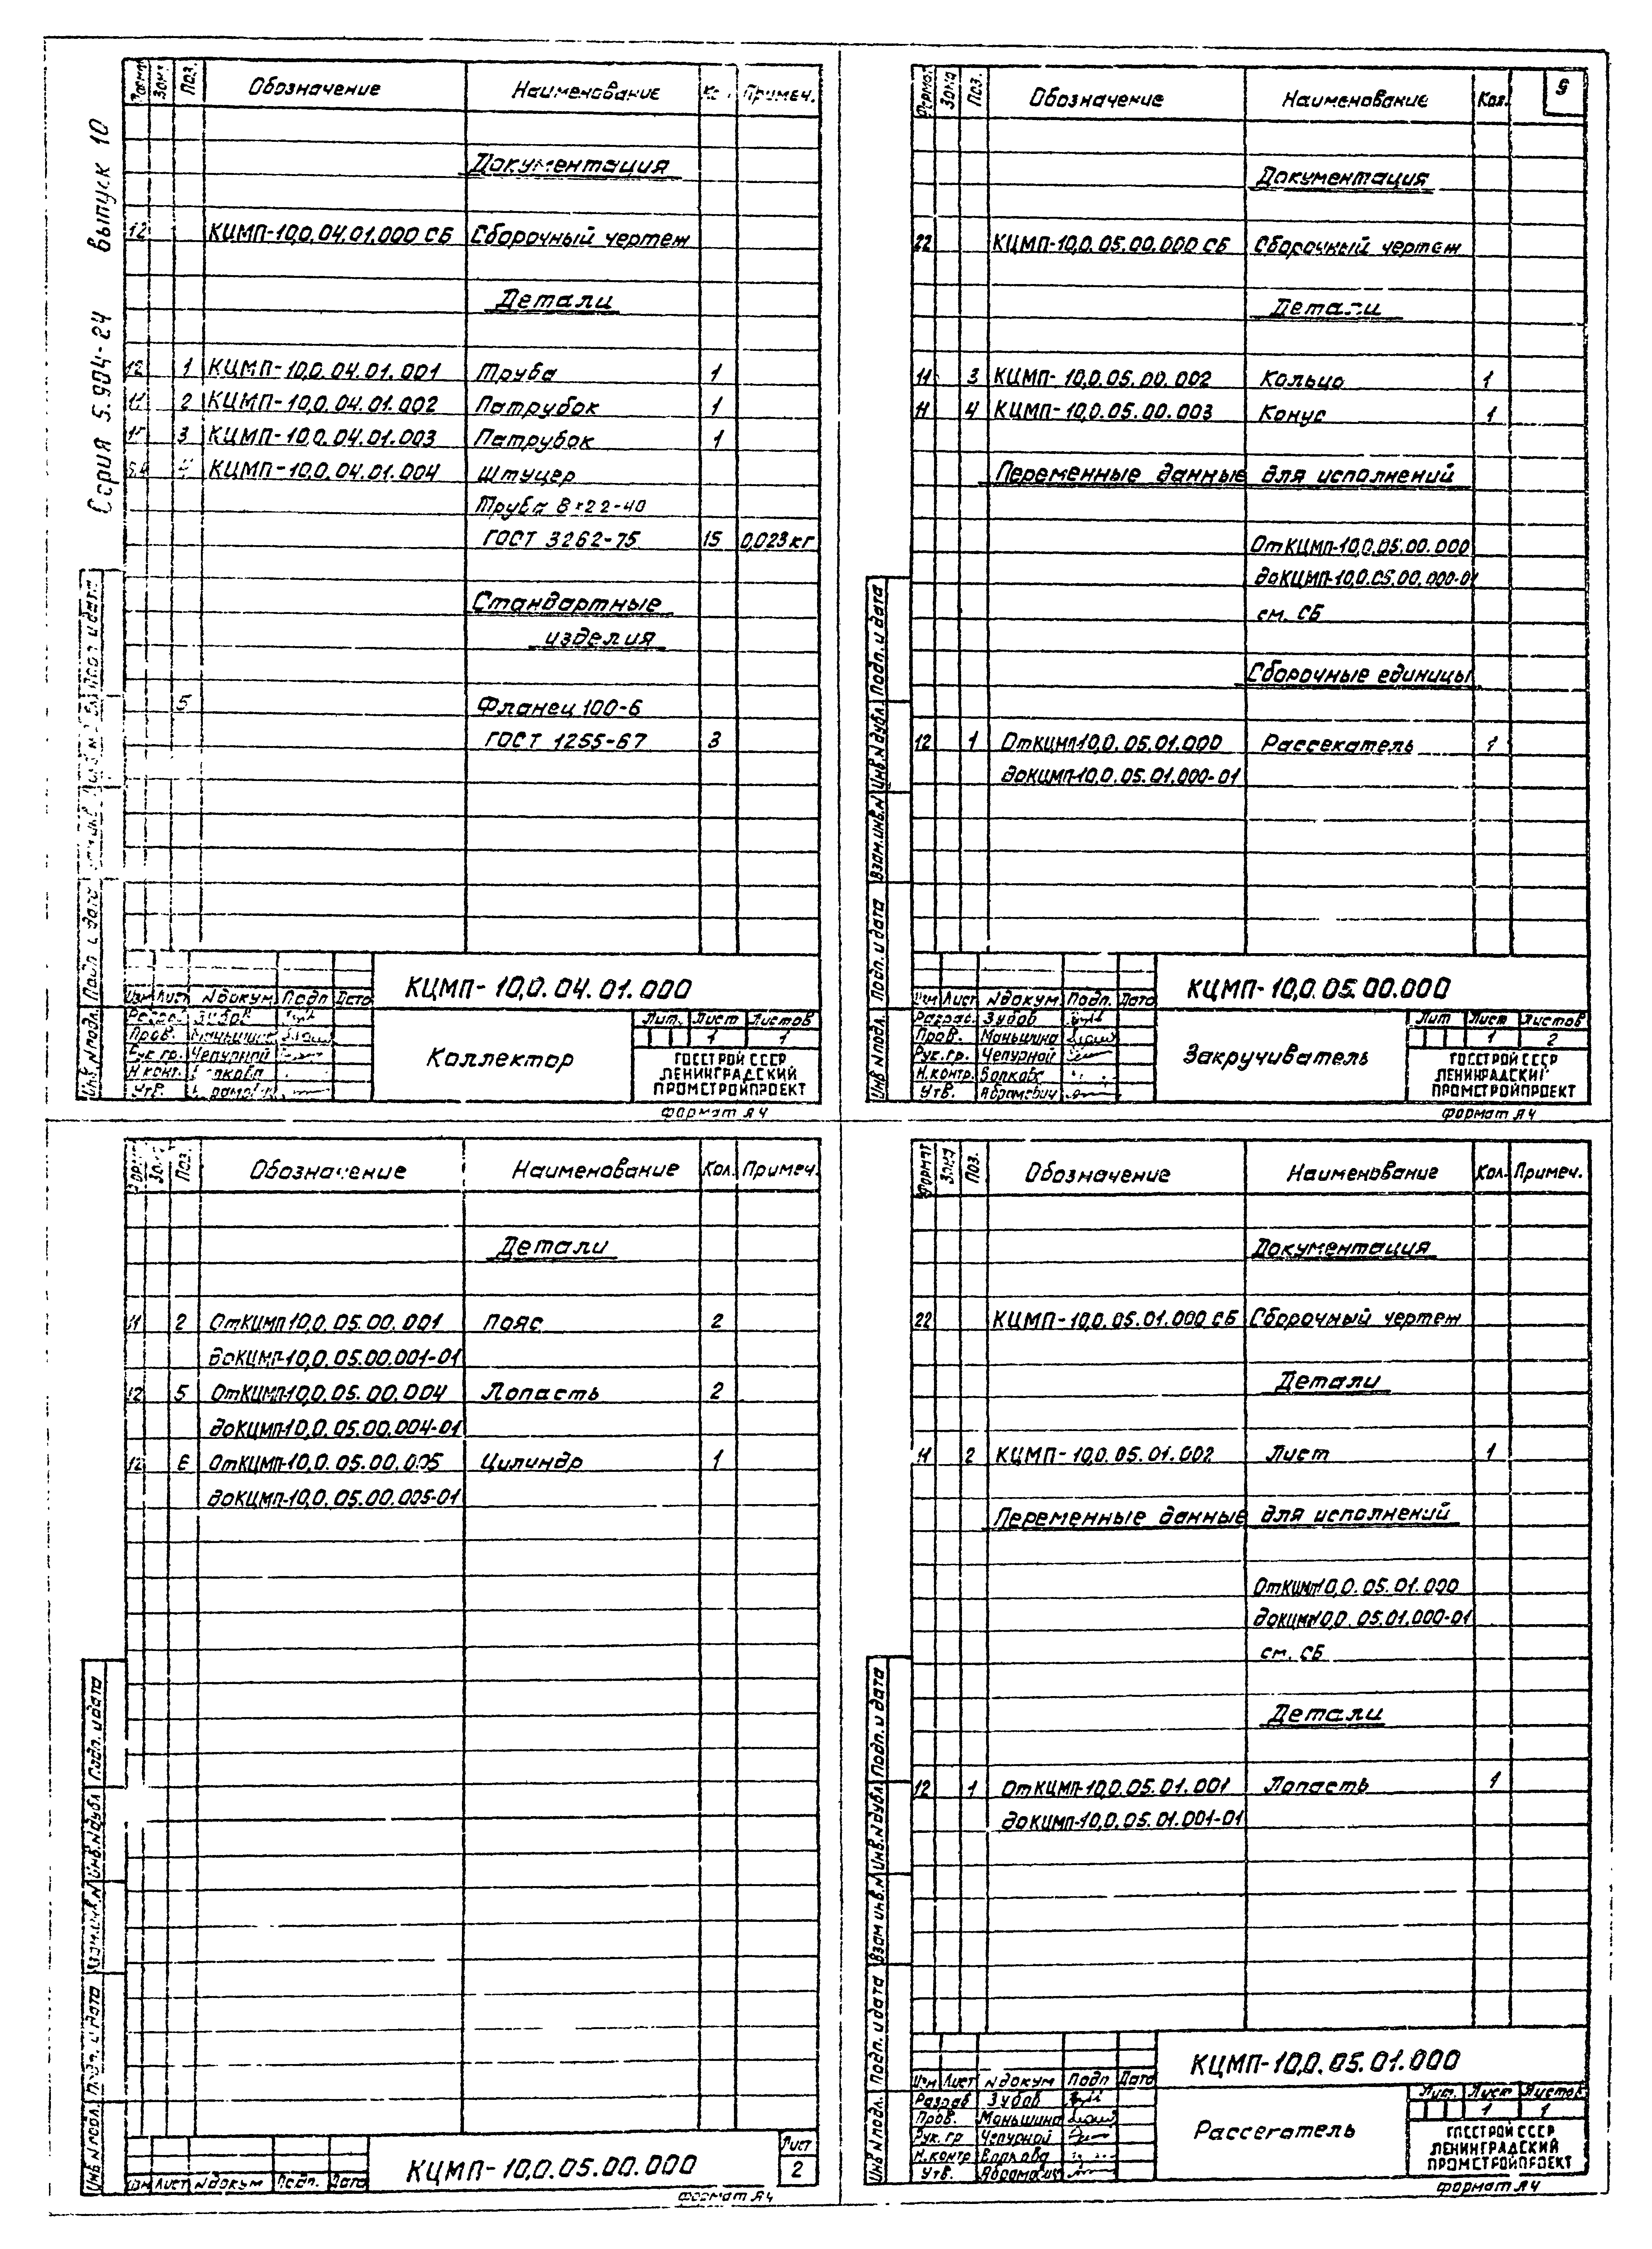 Серия 5.904-24 выпуск 10
Поз. Обозначение Наименование Примеч.
Документация
12 КЦМП-10,0.04.01.000 СБ Сборочный чертеж
Детали
12 1 КЦМП-10,0.04.01.001 Труба 1
11 2 КЦМП-10,0.04.01.002 Патрубок 1
11 3 КЦМП-10,0.04.01.003 Патрубок 1
КЦМП-10,0.04.01.004 Штуцер
Труба 8×2.2-40
ГОСТ 3262-75 15 0,023 кг
Стандартные
изделия
5 Фланец 100-6
ГОСТ 1255-67 3
Изм Лист N докум Подп Дата
Разраб Зубов
Пров. Маньшина
Рук.гр. Чепурной
Н.конт.
Утв.
КЦМП-10,0.04.01.000
Коллектор
Лит. Лист Листов
1 1
ГОССТРОЙ СССР
ЛЕНИНГРАДСКИЙ
ПРОМСТРОЙПРОЕКТ
Инв.N подл. Подп. и дата
формат А4
9
Формат Зона Поз. Обозначение Наименование Кол.
Документация
22 КЦМП-10,0.05.00.000 СБ Сборочный чертеж
Детали
11 3 КЦМП-10,0.05.00.002 Кольцо 1
11 4 КЦМП-10,0.05.00.003 Конус 1
Переменные данные для исполнений
От КЦМП-10,0.05.00.000
до КЦМП-10,0.05.00.000-01
см. СБ
Сборочные единицы
12 1 От КЦМП-10,0.05.01.000 Рассекатель 1
до КЦМП-10,0.05.01.000-01
Изм Лист N докум Подп. Дата
Разраб. Зубов
Пров. Маньшина
Рук.гр. Чепурной
Н.контр. Волкова
Утв. Абрамович
КЦМП-10,0.05.00.000
Закручиватель
Лит Лист Листов
1 2
ГОССТРОЙ СССР
ЛЕНИНГРАДСКИЙ
ПРОМСТРОЙПРОЕКТ
Инв N подл. Подп. и дата Взам.инв.N Инв.N дубл. Подп. и дата
формат А4
Поз. Обозначение Наименование Кол. Примеч.
Детали
11 2 От КЦМП 10,0.05.00.001 Пояс 2
до КЦМП-10,0.05.00.001-01
12 5 От КЦМП-10,0.05.00.004 Лопасть 2
до КЦМП-10,0.05.00.004-01
12 6 От КЦМП-10,0.05.00.005 Цилиндр 1
до КЦМП-10,0.05.00.005-01
Изм Лист N докум Подп. Дата
КЦМП-10,0.05.00.000
Лист
2
Инв N подл. Подп. и дата Взам.инв.N Инв.N дубл Подп. и дата
формат А4
Формат Зона Поз. Обозначение Наименование Кол. Примеч.
Документация
22 КЦМП-10,0.05.01.000 СБ Сборочный чертеж
Детали
11 2 КЦМП-10,0.05.01.002 Лист 1
Переменные данные для исполнений
От КЦМП 10,0.05.01.000
до КЦМП 10,0.05.01.000-01
см. СБ
Детали
12 1 От КЦМП-10,0.05.01.001 Лопасть 1
до КЦМП-10,0.05.01.001-01
Изм Лист N докум Подп Дата
Разраб Зубов
Пров. Маньшина
Рук.гр Чепурной
Н.контр Волкова
Утв. Абрамович
КЦМП-10,0.05.01.000
Рассекатель
Лит. Лист Листов
1 1
ГОССТРОЙ СССР
ЛЕНИНГРАДСКИЙ
ПРОМСТРОЙПРОЕКТ
Инв N подл. Подп. и дата Взам инв.N Инв.N дубл Подп. и дата
формат А4